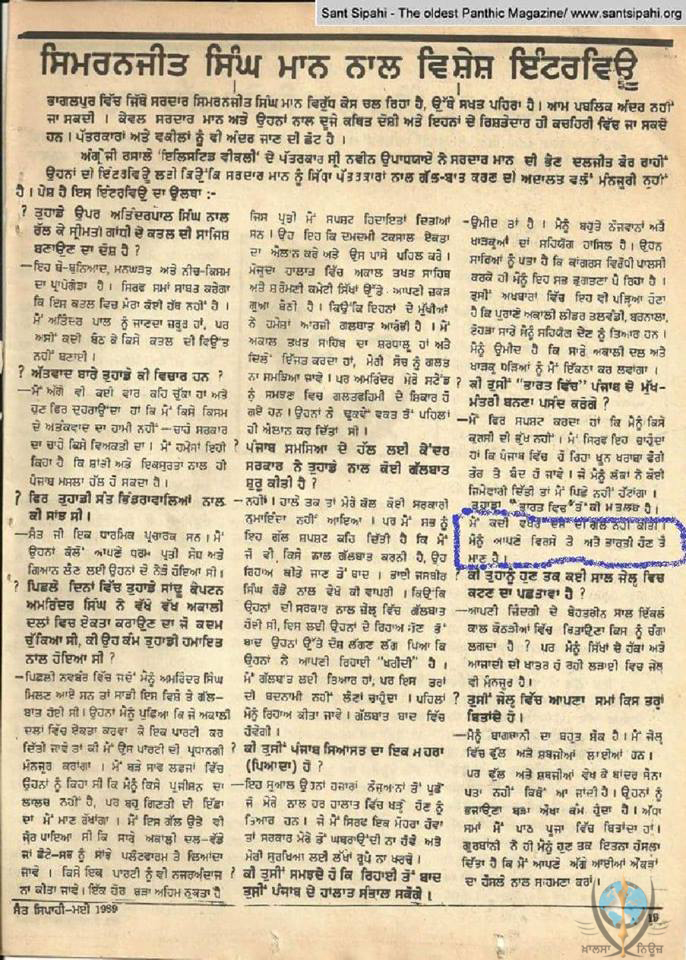 Sant Sipahi - The oldest Panthic Magazine/ www.santsipahi.org
ਸਿਮਰਨਜੀਤ ਸਿੰਘ ਮਾਨ ਨਾਲ ਵਿਸ਼ੇਸ਼ ਇੰਟਰਵਿਊ
ਭਾਗਲਪੁਰ ਵਿੱਚ ਜਿੱਥੇ ਸਰਦਾਰ ਸਿਮਰਨਜੀਤ ਸਿੰਘ ਮਾਨ ਵਿਰੁੱਧ ਕੇਸ ਚਲ ਰਿਹਾ ਹੈ, ਉੱਥੇ ਸਖਤ ਪਹਿਰਾ ਹੈ। ਆਮ ਪਬਲਿਕ ਅੰਦਰ ਨਹੀਂ
ਜਾ ਸਕਦੀ। ਕੇਵਲ ਸਰਦਾਰ ਮਾਨ ਅਤੇ ਉਹਨਾਂ ਨਾਲ ਦੂਜੇ ਕਥਿਤ ਦੋਸ਼ੀ ਅਤੇ ਇਹਨਾਂ ਦੇ ਰਿਸ਼ਤੇਦਾਰ ਹੀ ਕਚਹਿਰੀ ਵਿੱਚ ਜਾ ਸਕਦੇ
ਹਨ। ਪੱਤਰਕਾਰਾਂ ਅਤੇ ਵਕੀਲਾਂ ਨੂੰ ਵੀ ਅੰਦਰ ਜਾਣ ਦੀ ਛੋਟ ਹੈ।
ਅੰਗ੍ਰੇਜੀ ਰਸਾਲੇ 'ਇਲਿਸਟਿਡ ਵੀਕਲੀ' ਦੇ ਪਤਰਕਾਰ ਸ੍ਰੀ ਨਵੀਨ ਉਪਾਧਯਾਏ ਨੇ ਸਰਦਾਰ ਮਾਨ ਦੀ ਭੈਣ ਦਲਜੀਤ ਕੌਰ ਰਾਹੀਂ
ਉਹਨਾਂ ਦੀ ਇੰਟਰਵਿਊ ਲਈ ਕਿਉਂਕਿ ਸਰਦਾਰ ਮਾਨ ਨੂੰ ਸਿੱਧਾ ਪੱਤਰਕਾਰਾਂ ਨਾਲ ਗੱਲ-ਬਾਤ ਕਰਣ ਦੀ ਅਦਾਲਤ ਵਲੋਂ ਮੰਨਜ਼ੂਰੀ ਨਹੀਂ
ਹੈ। ਪੇਸ਼ ਹੈ ਇਸ ਇੰਟਰਵਿਊ ਦਾ ਉਲਥਾ :-
? ਤੁਹਾਡੇ ਉਪਰ ਅਤਿੰਦਰਪਾਲ ਸਿੰਘ ਨਾਲ
ਰੱਲ ਕੇ ਸ੍ਰੀਮਤੀ ਗਾਂਧੀ ਦੇ ਕਤਲ ਦੀ ਸਾਜਿਸ਼
ਬਣਾਉਣ ਦਾ ਦੋਸ਼ ਹੈ ?
—ਇਹ ਬੇ-ਬੁਨਿਆਦ, ਮਨਘੜਤ ਅਤੇ ਨੀਚ-ਕਿਸਮ
ਦਾ ਪ੍ਰਾਪੇਗੰਡਾ ਹੈ। ਸਿਰਫ ਸਮਾਂ ਸਾਬਤ ਕਰੇਗਾ
ਕਿ ਇਸ ਕਤਲ ਵਿਚ ਮੇਰਾ ਕੋਈ ਹੱਥ ਨਹੀਂ ਹੈ।
ਮੈਂ ਅਤਿੰਦਰ ਪਾਲ ਨੂੰ ਜਾਣਦਾ ਜ਼ਰੂਰ ਹਾਂ, ਪਰ
ਅਸੀਂ ਕਦੀ ਬੈਠ ਕੇ ਕਿਸੇ ਕਤਲ ਦੀ ਵਿਉਂਤ
ਨਹੀਂ ਬਣਾਈ।
? ਅੱਤਵਾਦ ਬਾਰੇ ਤੁਹਾਡੇ ਕੀ ਵਿਚਾਰ ਹਨ ?
—ਮੈਂ ਅੱਗੋਂ ਵੀ ਕਈ ਵਾਰ ਕਹਿ ਚੁੱਕਾ ਹਾਂ ਅਤੇ
ਹੁਣ ਫਿਰ ਦੁਹਰਾਉਂਦਾ ਹਾਂ ਕਿ ਮੈਂ ਕਿਸੇ ਕਿਸਮ
ਦੇ ਅਤਵਾਦ ਦਾ ਹਾਮੀ ਨਹੀਂ—ਚਾਹੇ ਸਰਕਾਰ
ਦਾ ਚਾਹੇ ਕਿਸੇ ਵਿਅਕਤੀ ਦਾ। ਮੈਂ ਹਮੇਸ਼ਾਂ ਇਹੀ
ਕਿਹਾ ਹੈ ਕਿ ਸ਼ਾਂਤੀ ਅਤੇ ਇਕਸੁਰਤਾ ਨਾਲ ਹੀ
ਪੰਜਾਬ ਮਸਲਾ ਹੱਲ ਹੋ ਸਕਦਾ ਹੈ।
? ਫਿਰ ਤੁਹਾਡੀ ਸੰਤ ਭਿੰਡਰਾਂਵਾਲਿਆਂ ਨਾਲ
ਕੀ ਸਾਂਝ ਸੀ।
—ਸੰਤ ਜੀ ਇਕ ਧਾਰਮਿਕ ਪ੍ਰਚਾਰਕ ਸਨ। ਮੈਂ
ਉਹਨਾਂ ਕੋਲੋਂ ਆਪਣੇ ਧਰਮ ਪ੍ਰਤੀ ਸੇਧ ਅਤੇ
ਗਿਆਨ ਲੈਣ ਲਈ ਉਹਨਾਂ ਦੇ ਨੇੜੇ ਹੋਇਆ ਸੀ।
? ਪਿਛਲੇ ਦਿਨਾਂ ਵਿੱਚ ਤੁਹਾਡੇ ਸਾਂਢੂ ਕੈਪਟਨ
ਅਮਰਿੰਦਰ ਸਿੰਘ ਨੇ ਵੱਖੋ ਵੱਖ ਅਕਾਲੀ
ਦਲਾਂ ਵਿਚ ਏਕਤਾ ਕਰਾਉਣ ਦਾ ਜੋ ਕਦਮ
ਚੁੱਕਿਆ ਸੀ, ਕੀ ਉਹ ਕੰਮ ਤੁਹਾਡੀ ਹਮਾਇਤ
ਨਾਲ ਹੋਇਆ ਸੀ ?
—ਪਿਛਲੀ ਨਵੰਬਰ ਵਿੱਚ ਜਦੋਂ ਮੈਨੂੰ ਅਮਰਿੰਦਰ ਸਿੰਘ
ਮਿਲਣ ਆਏ ਸਨ ਤਾਂ ਸਾਡੀ ਇਸ ਵਿਸ਼ੇ ਤੇ ਗੱਲ-
ਬਾਤ ਹੋਈ ਸੀ। ਉਹਨਾਂ ਮੈਨੂੰ ਪੁਛਿਆ ਕਿ ਜੇ ਅਕਾਲੀ
ਦਲਾਂ ਵਿੱਚ ਏਕਤਾ ਕਰਵਾ ਕੇ ਇਕ ਪਾਰਟੀ ਕਰ
ਦਿੱਤੀ ਜਾਵੇ ਤਾਂ ਕੀ ਮੈਂ ਉਸ ਪਾਰਟੀ ਦੀ ਪ੍ਰਧਾਨਗੀ
ਮੰਨਜੂਰ ਕਰਾਂਗਾ। ਮੈਂ ਬੜੇ ਸਾਫ ਲਫਜਾਂ ਵਿੱਚ
ਉਹਨਾਂ ਨੂੰ ਕਿਹਾ ਸੀ ਕਿ ਮੈਨੂੰ ਕਿਸੇ ਪੁਜੀਸ਼ਨ ਦਾ
ਲਾਲਚ ਨਹੀਂ ਹੈ, ਪਰ ਬਹੁ ਗਿਣਤੀ ਦੀ ਇੱਛਾ
ਦਾ ਮੈਂ ਮਾਣ ਰੱਖਾਂਗਾ। ਮੈਂ ਇਸ ਗੱਲ ਉਤੇ ਵੀ
ਜ਼ੋਰ ਪਾਇਆ ਸੀ ਕਿ ਸਾਰੇ ਅਕਾਲੀ ਦਲ-ਵੱਡੇ
ਜਾਂ ਛੋਟੇ-ਸਭ ਨੂੰ ਸਾਂਝੇ ਪਲੇਟਫਾਰਮ ਤੇ ਲਿਆਂਦਾ
ਜਾਵੇ। ਕਿਸੇ ਇਕ ਪਾਰਟੀ ਨੂੰ ਵੀ ਨਜਰਅੰਦਾਜ
ਨਾ ਕੀਤਾ ਜਾਵੇ। ਇੱਕ ਹੋਰ ਬੜਾ ਅਹਿਮ ਨੁਕਤਾ ਹੈ
ਜਿਸ ਪ੍ਰਤੀ ਮੈਂ ਸਪਸ਼ਟ ਹਿਦਾਇਤਾਂ ਦਿਤੀਆਂ
ਸਨ। ਉਹ ਇਹ ਕਿ ਦਮਦਮੀ ਟਕਸਾਲ ਏਕਤਾ
ਦਾ ਐਲਾਨ ਕਰੇ ਅਤੇ ਉਸ ਪਾਸੇ ਪਹਿਲ ਕਰੇ।
ਮੌਜੂਦਾ ਹਾਲਾਤ ਵਿੱਚ ਅਕਾਲ ਤਖਤ ਸਾਹਿਬ
ਅਤੇ ਸ਼ਰੋਮਣੀ ਕਮੇਟੀ ਸਿੱਖਾਂ ਉੱਤੇ ਆਪਣੀ ਜਕੜ
ਗੁਆ ਬੈਠੀ ਹੈ। ਕਿਉਂਕਿ ਇਹਨਾਂ ਦੇ ਮੁੱਖੀਆਂ
ਨੇ ਹਮੇਸ਼ਾਂ ਆਰਜ਼ੀ ਗਲਬਾਤ ਆਰੰਭੀ ਹੈ। ਮੈਂ
ਅਕਾਲ ਤਖਤ ਸਾਹਿਬ ਦਾ ਸ਼ਰਧਾਲੂ ਹਾਂ ਅਤੇ
ਦਿਲੋਂ ਇੱਜਤ ਕਰਦਾ ਹਾਂ, ਮੇਰੀ ਸੋਚ ਨੂੰ ਗਲਤ
ਨਾ ਸਮਝਿਆ ਜਾਵੇ। ਪਰ ਅਮਰਿੰਦਰ ਮੇਰੇ ਸਟੈਂਡ
ਨੂੰ ਸਮਝਣ ਵਿਚ ਗਲਤਫਹਿਮੀ ਦੇ ਸ਼ਿਕਾਰ ਹੋ
ਗਏ ਹਨ। ਉਹਨਾਂ ਨੇ ਢੁਕਵੇਂ ਵਕਤ ਤੋਂ ਪਹਿਲਾਂ
ਹੀ ਐਲਾਨ ਕਰ ਦਿੱਤਾ ਸੀ।
? ਪੰਜਾਬ ਸਮਸਿਆ ਦੇ ਹੱਲ ਲਈ ਕੇਂਦਰ
ਸਰਕਾਰ ਨੇ ਤੁਹਾਡੇ ਨਾਲ ਕੋਈ ਗੱਲਬਾਤ
ਸ਼ੁਰੂ ਕੀਤੀ ਹੈ ?
—ਨਹੀਂ। ਹਾਲੇ ਤਕ ਤਾਂ ਮੇਰੇ ਕੋਲ ਕੋਈ ਸਰਕਾਰੀ
ਨੁਮਾਇੰਦਾ ਨਹੀਂ ਆਇਆ। ਪਰ ਮੈਂ ਸਭ ਨੂੰ
ਇਹ ਗੱਲ ਸਪਸ਼ਟ ਕਹਿ ਦਿੱਤੀ ਹੈ ਕਿ ਮੈਂ
ਜੋ ਵੀ, ਕਿਸੇ ਨਾਲ ਗੱਲਬਾਤ ਕਰਨੀ ਹੈ, ਉਹ
ਰਿਹਾਅ ਕੀਤੇ ਜਾਣ ਤੋਂ ਬਾਦ। ਭਾਈ ਜਸਬੀਰ
ਸਿੰਘ ਰੋਡੇ ਨਾਲ ਵੇਖੋ ਕੀ ਵਾਪਰੀ। ਕਿਉਂਕਿ
ਉਹਨਾਂ ਦੀ ਸਰਕਾਰ ਨਾਲ ਜ਼ੇਲ੍ਹ ਵਿੱਚ ਗੱਲਬਾਤ
ਹੋਈ ਸੀ, ਇਸ ਲਈ ਉਹਨਾਂ ਦੇ ਰਿਹਾਅ ਹੋਣ ਤੋਂ
ਬਾਦ ਉਹਨਾਂ ਉੱਤੇ ਦੋਸ਼ ਲੱਗਣ ਲੱਗ ਪਿਆ ਕਿ
ਉਹਨਾਂ ਨੇ ਆਪਣੀ ਰਿਹਾਈ "ਖਰੀਦੀ" ਹੈ।
ਮੈਂ ਗੱਲਬਾਤ ਲਈ ਤਿਆਰ ਹਾਂ, ਪਰ ਇਸ ਤਰਾਂ
ਦੀ ਬਦਨਾਮੀ ਨਹੀਂ ਲੈਣਾ ਚਾਹੁੰਦਾ। ਪਹਿਲਾਂ
ਮੈਨੂੰ ਰਿਹਾਅ ਕੀਤਾ ਜਾਵੇ। ਗੱਲਬਾਤ ਬਾਦ ਵਿੱਚ
ਹੋਵੇਗੀ।
? ਕੀ ਤੁਸੀਂ ਪੰਜਾਬ ਸਿਆਸਤ ਦਾ ਇਕ ਮੋਹਰਾ
(ਪਿਆਦਾ) ਹੋ ?
—ਇਹ ਸੁਆਲ ਉਹਨਾਂ ਹਜਾਰਾਂ ਨੌਜੁਆਨਾਂ ਤੋਂ ਪੁਛੋ
ਜੋ ਮੇਰੇ ਨਾਲ ਹਰ ਹਾਲਾਤ ਵਿੱਚ ਖੜ੍ਹੇ ਹੋਣ ਨੂੰ
ਤਿਆਰ ਹਨ। ਜੇ ਮੈਂ ਸਿਰਫ ਇਕ ਮੋਹਰਾ ਹੋਵਾਂ
ਤਾਂ ਸਰਕਾਰ ਮੇਰੇ ਤੋਂ ਘਬਰਾਉਂਦੀ ਨਾ ਹੋਵੇ ਅਤੇ
ਮੇਰੀ ਸੁਰਖਿਆ ਲਈ ਲੱਖਾਂ ਰੂਪੈ ਨਾ ਖਰਚੇ।
? ਕੀ ਤੁਸੀਂ ਸਮਝਦੇ ਹੋ ਕਿ ਰਿਹਾਈ ਤੋਂ ਬਾਦ
ਤੁਸੀਂ ਪੰਜਾਬ ਦੇ ਹਾਲਾਤ ਸੰਭਾਲ ਸਕੋਗੇ।
—ਉਮੀਦ ਤਾਂ ਹੈ। ਮੈਨੂੰ ਬਹੁਤੇ ਨੌਜਵਾਨਾਂ ਅਤੇ
ਖਾੜਕੂਆਂ ਦਾ ਸਹਿਯੋਗ ਹਾਸਿਲ ਹੈ। ਉਹਨ
ਸਾਰਿਆਂ ਨੂੰ ਪਤਾ ਹੈ ਕਿ ਕਾਂਗਰਸ ਵਿਰੋਧੀ ਪਾਲਸੀ
ਕਰਕੇ ਹੀ ਮੈਨੂੰ ਇਹ ਸਭ ਭੁਗਤਣਾ ਪੈ ਰਿਹਾ ਹੈ।
ਤੁਸੀਂ ਅਖਬਾਰਾਂ ਵਿੱਚ ਇਹ ਵੀ ਪੜ੍ਹਿਆ ਹੋਣਾ
ਹੈ ਕਿ ਪੁਰਾਣੇ ਅਕਾਲੀ ਲੀਡਰ ਤਲਵੰਡੀ, ਬਰਨਾਲਾ,
ਟੌਹੜਾ ਸਾਰੇ ਮੈਨੂੰ ਸਹਿਯੋਗ ਦੇਣ ਨੂੰ ਤਿਆਰ ਹਨ।
ਮੈਨੂੰ ਉਮੀਦ ਹੈ ਕਿ ਸਾਰੇ ਅਕਾਲੀ ਦਲ ਅਤੇ
ਖਾੜਕੂ ਧੜਿਆਂ ਨੂੰ ਮੈਂ ਇਕੱਠਾ ਕਰ ਲਵਾਂਗਾ।
? ਕੀ ਤੁਸੀਂ "ਭਾਰਤ ਵਿੱਚ" ਪੰਜਾਬ ਦੇ ਮੁੱਖ-
ਮੰਤਰੀ ਬਨਣਾ ਪਸੰਦ ਕਰੋਗੇ ?
—ਮੈਂ ਫਿਰ ਸਪਸ਼ਟ ਕਰਦਾ ਹਾਂ ਕਿ ਮੈਨੂੰ ਕਿਸੇ
ਕੁਰਸੀ ਦੀ ਭੁੱਖ ਨਹੀਂ। ਮੈਂ ਸਿਰਫ ਇਹ ਚਾਹੁੰਦਾ
ਹਾਂ ਕਿ ਪੰਜਾਬ ਵਿੱਚ ਹੋ ਰਿਹਾ ਖੂਨ ਖਰਾਬਾ ਫੌਰੀ
ਤੌਰ ਤੇ ਬੰਦ ਹੋ ਜਾਵੇ। ਜੇ ਮੈਨੂੰ ਲੋਕਾਂ ਨੇ ਕੋਈ
ਜਿਮੇਵਾਰੀ ਦਿੱਤੀ ਤਾਂ ਮੈਂ ਪਿਛੇ ਨਹੀਂ ਹੱਟਾਂਗਾ।
ਤੁਹਾਡਾ "ਭਾਰਤ ਵਿਚ" ਤੋਂ ਕੀ ਮਤਲਬ ਹੈ।
ਮੈਂ ਕਦੀ ਵੱਖਰੇ ਦੀ ਗੱਲ ਨਹੀਂ ਕੀਤੀ।
ਮੈਨੂੰ ਆਪਣੇ ਵਿਰਸੇ ਤੇ ਅਤੇ ਭਾਰਤੀ ਹੋਣ ਤੇ
ਮਾਣ ਹੈ।
? ਕੀ ਤੁਹਾਨੂੰ ਹੁਣ ਤਕ ਕਈ ਸਾਲ ਜੇਲ੍ਹ ਵਿਚ
ਕਟਣ ਦਾ ਪਛਤਾਵਾ ਹੈ ?
—ਆਪਣੀ ਜ਼ਿੰਦਗੀ ਦੇ ਬੇਹਤਰੀਨ ਸਾਲ ਇੱਕਲੇ
ਕਾਲ ਕੋਠੜੀਆਂ ਵਿੱਚ ਬਿਤਾਉਣਾ ਕਿਸ ਨੂੰ ਚੰਗਾ
ਲਗਦਾ ਹੈ ? ਪਰ ਮੈਨੂੰ ਸਿੱਖਾਂ ਦੇ ਹੱਕਾਂ ਅਤੇ
ਆਜ਼ਾਦੀ ਦੀ ਖਾਤਰ ਹੋ ਰਹੀ ਲੜਾਈ ਵਿਚ ਜੇਲ੍ਹ
ਵੀ ਮੰਨਜੂਰ ਹੈ।
? ਤੁਸੀਂ ਜੇਲ੍ਹ ਵਿੱਚ ਆਪਣਾ ਸਮਾਂ ਕਿਸ ਤਰ੍ਹਾਂ
ਬਿਤਾਂਦੇ ਹੋ।
—ਮੈਨੂੰ ਬਾਗਬਾਨੀ ਦਾ ਬਹੁਤ ਸ਼ੌਕ ਹੈ। ਮੈਂ ਜੇਲ੍ਹ
ਵਿੱਚ ਫੁੱਲ ਅਤੇ ਸ਼ਬਜੀਆਂ ਲਾਈਆਂ ਹਨ।
ਪਰ ਫੁੱਲ ਅਤੇ ਸ਼ਬਜੀਆਂ ਵੇਖ ਕੇ ਬਾਂਦਰ ਸੈਨਾ
ਪਤਾ ਨਹੀਂ ਕਿਥੋਂ ਆ ਜਾਂਦੀ ਹੈ। ਉਹਨਾਂ ਨੂੰ
ਭਜਾਉਣਾ ਬੜਾ ਔਖਾ ਕੰਮ ਹੁੰਦਾ ਹੈ। ਅੱਧਾ
ਸਮਾਂ ਮੈਂ ਪਾਠ ਪੂਜਾ ਵਿੱਚ ਬਿਤਾਂਦਾ ਹਾਂ।
ਗੁਰਬਾਨੀ ਨੇ ਹੀ ਮੈਨੂੰ ਹੁਣ ਤਕ ਇਤਨਾ ਹੌਸਲਾ
ਦਿੱਤਾ ਹੈ ਕਿ ਮੈਂ ਆਪਣੇ ਅੱਗੇ ਆਈਆਂ ਔਕੜਾਂ
ਦਾ ਹੌਸਲੇ ਨਾਲ ਸਾਹਮਣਾ ਕਰਾਂ।
ਸੰਤ ਸਿਪਾਹੀ-ਮਈ 1989
19
ਖ਼ਾਲਸਾ ਨਿਊਜ਼